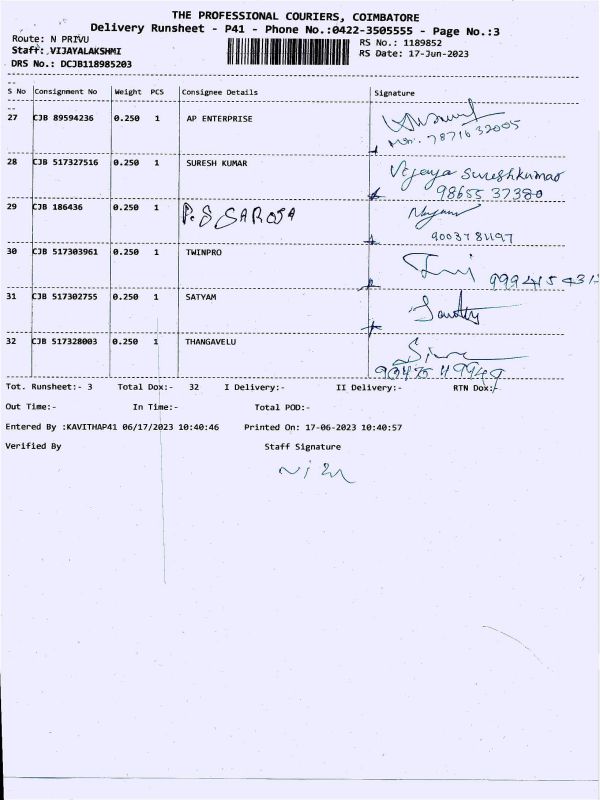 THE PROFESSIONAL COURIERS, COIMBATORE
Delivery Runsheet - P41 - Phone No.:0422-3505555 - Page No.:3
Route: N PRIVU
RS No.: 1189852
Staff: VIJAYALAKSHMI
RS Date: 17-Jun-2023
DRS No.: DCJB118985203
S No Consignment No Weight PCS Consignee Details Signature
27 CJB 89594236 0.250 1 AP ENTERPRISE
7871632005
28 CJB 517327516 0.250 1 SURESH KUMAR Vijaya Sureshkumar
98655 37380
29 CJB 186436 0.250 1 P. S SAROJA
9003781197
30 CJB 517303961 0.250 1 TWINPRO
31 CJB 517302755 0.250 1 SATYAM
32 CJB 517328003 0.250 1 THANGAVELU
Tot. Runsheet:- 3 Total Dox:- 32 I Delivery:- II Delivery:- RTN Dox:-
Out Time:- In Time:- Total POD:-
Entered By :KAVITHAP41 06/17/2023 10:40:46 Printed On: 17-06-2023 10:40:57
Verified By Staff Signature